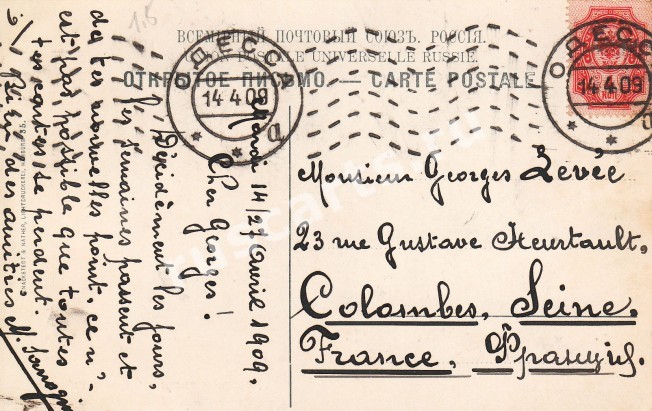 ВСЕМІРНЫЙ ПОЧТОВЫЙ СОЮЗЪ. РОССІЯ.
UNION POSTALE UNIVERSELLE RUSSIE.
ОТКРЫТОЕ ПИСЬМО. — CARTE POSTALE
ОДЕССА
14.4.09
ОДЕССА
14.4.09
Monsieur Georges Levée
23 rue Gustave Heurtault.
Colombes, Seine.
France, Франція.
14/27 Avril 1909.
Cher Georges!
Décidément les jours,
les semaines passent et
de tes nouvelles point. Ce n'-
est pas possible que toutes
tes cartes se perdent.
Bien des amitiés M.
1.5
ruscarts.ru